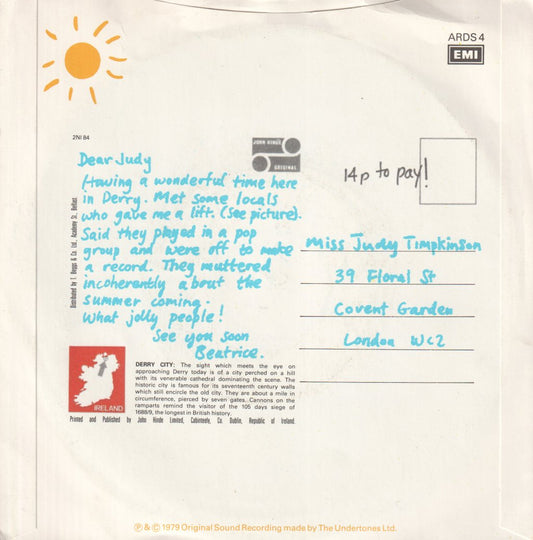 ARDS 4
EMI
2NI 84
JOHN HINDE
ORIGINAL
14p to pay!
Dear Judy
Having a wonderful time here
in Derry. Met some locals
who gave me a lift. (See picture).
Said they played in a pop
group and were off to make
a record. They muttered
incoherently about the
summer coming.
What jolly people!
See you soon
Beatrice.
Miss Judy Timpkinson
39 Floral St
Covent Garden
London WC2
Distributed by T. Beggs & Co. Ltd., Academy St., Belfast.
IRELAND
DERRY CITY: The sight which meets the eye on
approaching Derry today is of a city perched on a hill
with its venerable cathedral dominating the scene. The
historic city is famous for its seventeenth century walls
which still encircle the old city. They are about a mile in
circumference, pierced by seven gates. Cannons on the
ramparts remind the visitor of the 105 days siege of
1688/9, the longest in British history.
Printed and Published by John Hinde Limited, Cabinteely, Co. Dublin, Republic of Ireland.
Ⓟ & © 1979 Original Sound Recording made by The Undertones Ltd.